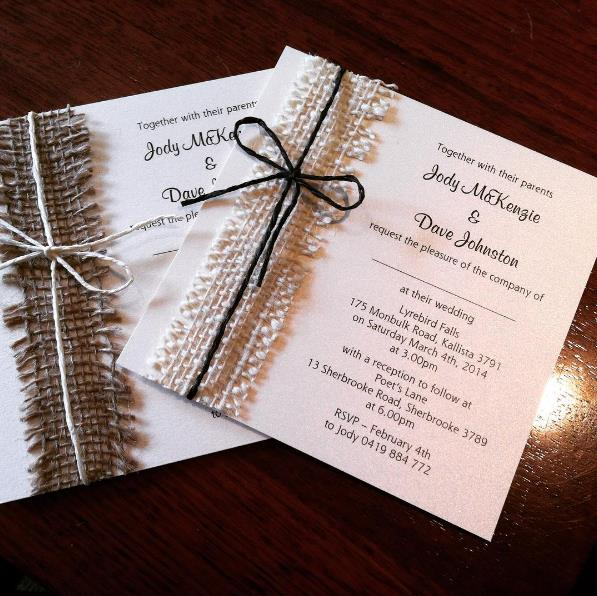 Together with their parents
Jody McKenzie
&
Dave Johnston
request the pleasure of the company of
at their wedding
Lyrebird Falls
175 Monbulk Road, Kallista 3791
on Saturday March 4th, 2014
at 3.00pm
with a reception to follow at
Poet's Lane
13 Sherbrooke Road, Sherbrooke 3789
at 6.00pm
RSVP – February 4th
to Jody 0419 884 772
Together with their parents
Jody
&
Dave
request the